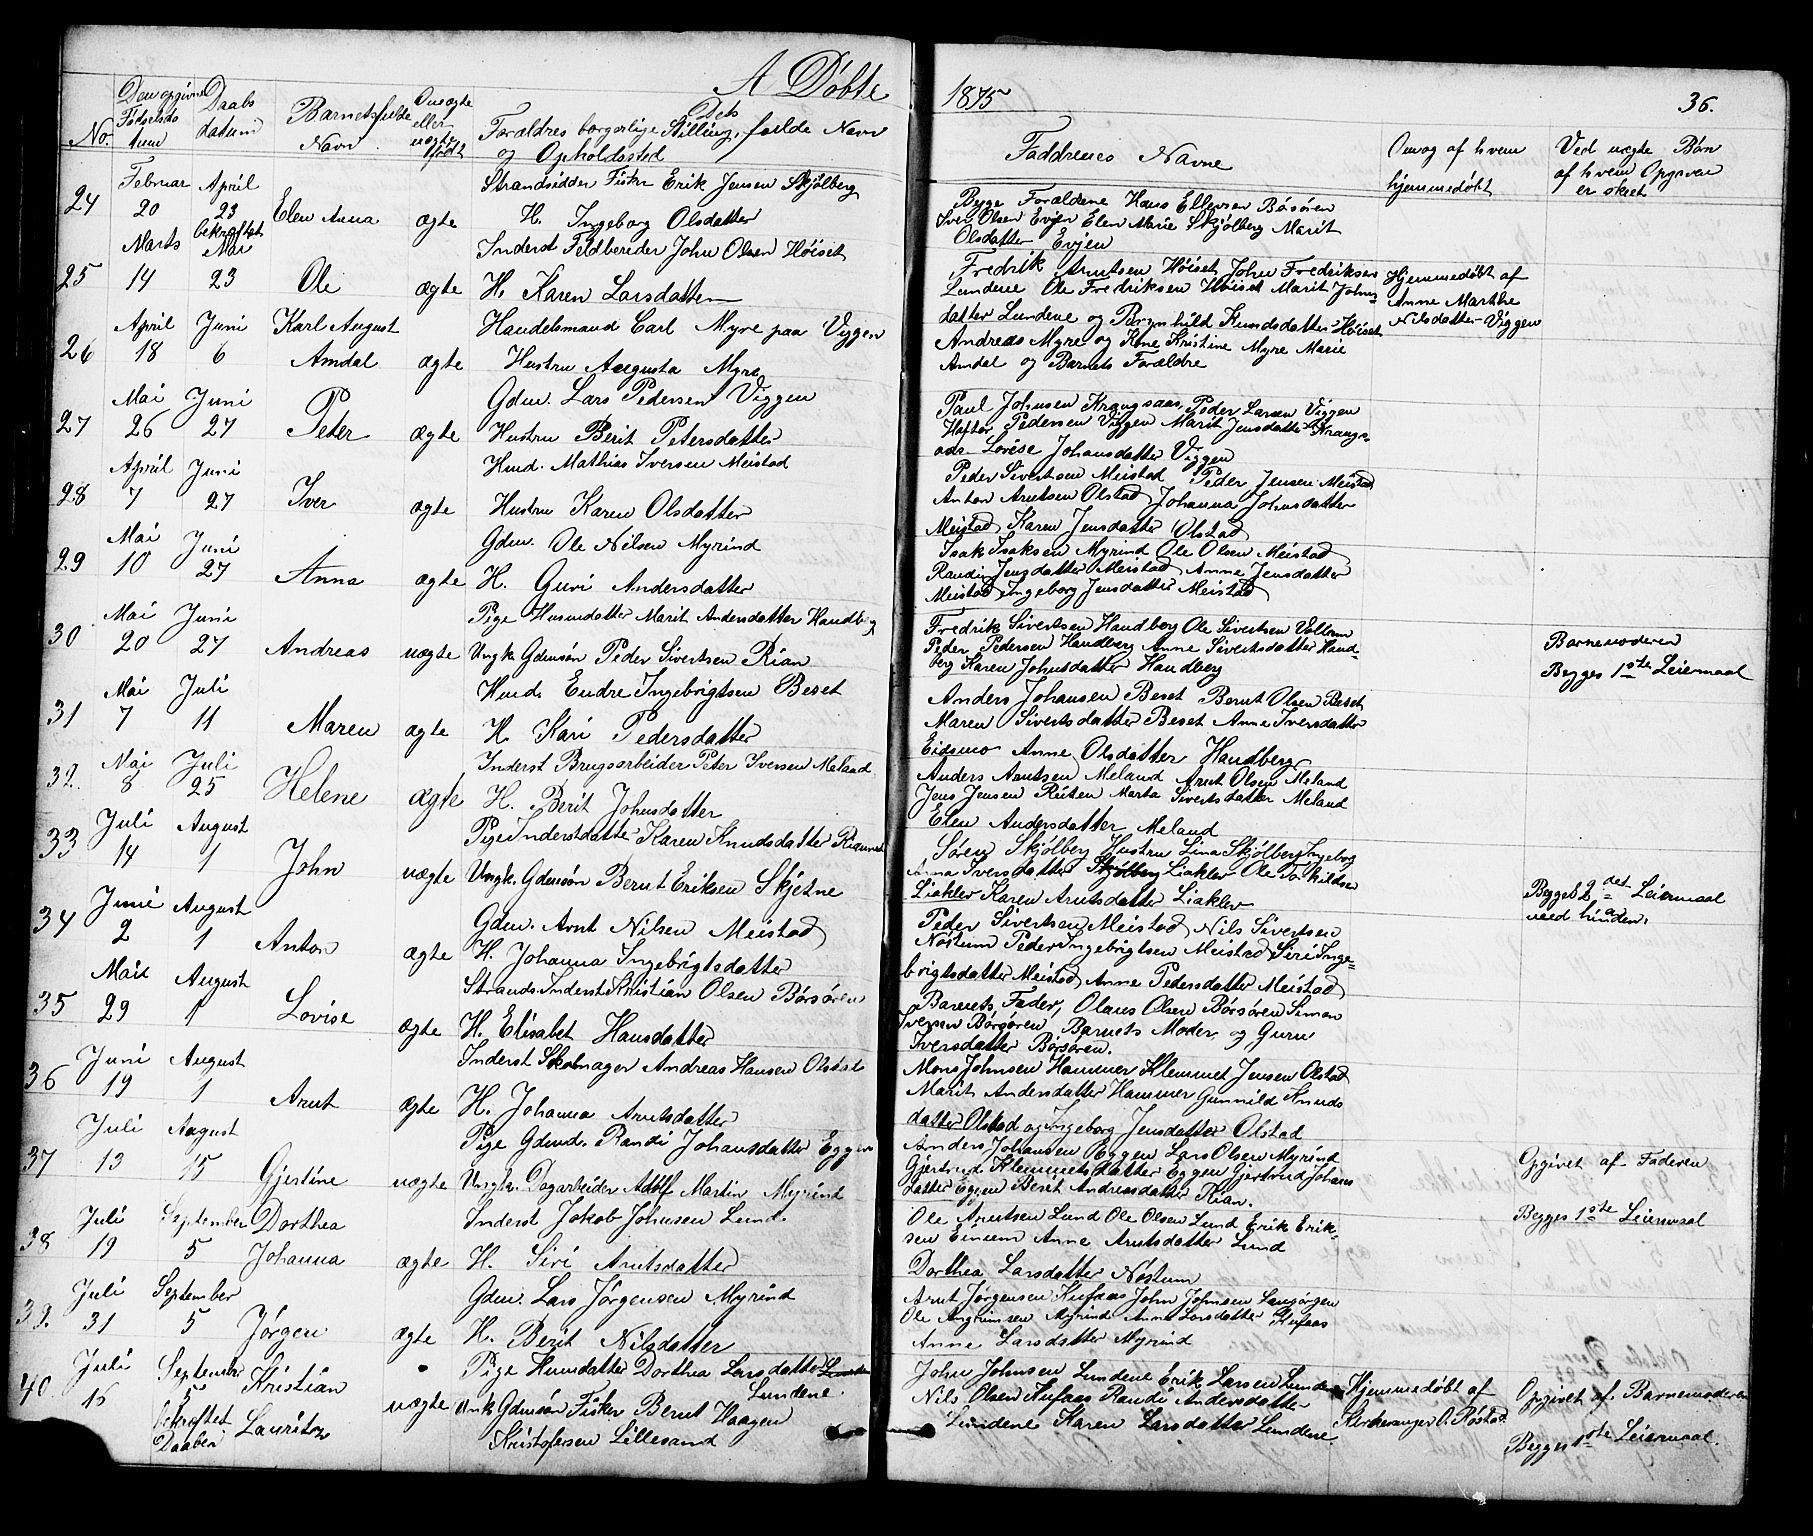 A Døbte 1875 36.
No. Den opgivne Fødselsdatum Daabsdatum Barnets fulde Navn Om ægte eller uægte født Dets Forældres borgerlige Stilling, fulde Navn og Opholdssted
Faddrenes Navne
Om og af hvem hjemmedøbt
Ved uægte Børn af hvem Opgaven er skeet
24 Februar 20 April 23 Elen Anna ægte Strandsidder Fisker Erik Jensen Skjølberg
H. Ingeborg Olsdatter
Begge Forældrene Hans Ellevsen Børsøren
Iver Olsen Evjen Elen Marie Skjølberg Marit
Olsdatter Evjen
25 Marts 14 bekræftet Mai 23 Ole ægte Inderst Feldbereder John Olsen Høiset
H. Karen Larsdatter
Fredrik Arntsen Høiset John Fredriksen
Lundene Ole Fredriksen Høiset Marit Johns
datter Lundene og Brynhild Knudsdatter Høiset
Hjemmedøbt af
Anne Marthe
Nilsdatter Viggen
26 April 18 Juni 6 Karl August Amdal ægte Handelsmand Carl Myre paa Viggen
Hustru Augusta Myre
Andreas Myre og Kone Kristine Myre Marie
Amdal og Barnets Forældre
27 Mai 26 Juni 27 Peter ægte Gdm. Lars Pedersen Viggen
Hustru Berit Petersdatter
Paul Johnsen Krangsaas, Peder Larsen Viggen
Haftor Pedersen Viggen Marit Jensdatter Krangs-
aas Lovise Johansdatter Viggen
28 April 7 Juni 27 Iver ægte Hmd. Mathias Iversen Meistad
Hustru Karen Olsdatter
Peder Sivertsen Meistad Peder Jensen Meistad
Anton Arntsen Olstad Johanna Johnsdatter
Meistad Karen Jensdatter Olstad
29 Mai 10 Juni 27 Anna ægte Gdm. Ole Nilsen Myrind
H. Guri Andersdatter
Isak Isaksen Myrind Ole Olsen Meistad
Randi Jensdatter Meistad Anne Jensdatter
Meistad Ingeborg Jensdatter Meistad
30 Mai 20 Juni 27 Andreas uægte Pige Husmdatter Marit Andersdatter Handberg
Ungk. Gdmsøn Peder Sivertsen Rian
Fredrik Sivertsen Handberg Ole Sivertsen Vollum
Peder Pedersen Handberg Anne Sivertsdatter Hand-
berg Karen Johnsdatter Handberg
Barnemoderen
Begges 1ste Leiermaal
31 Mai 7 Juli 11 Maren ægte Hmd. Endre Ingebrigtsen Beset
H. Kari Pedersdatter
Anders Johansen Beset Bernt Olsen Beset
Maren Sivertsdatter Beset Anne Iversdatter
Eidsmo Anne Olsdatter Handberg
32. Mai 8 Juli 25 Helene ægte Inderst Brugsarbeider Peter Iversen Meland
H. Berit Johnsdatter
Anders Arntsen Meland Arnt Olsen Meland
Jens Jensen Ruten Marta Sivertsdatter Meland
Elen Andersdatter Meland
33 Juli 14 August 1 John uægte Pige Inderstdatter Karen Knudsdatter
Ungk. Gdmsøn Bernt Eriksen Skjetne
Søren Skjølberg Hustru Lina Skjølberg Ingeborg
Anna Iversdatter Skjølberg Liaklev Ole
Liaklev Karen Arntsdatter Liaklev
Begges 2det Leiermaal
med hinanden.
34 Juni 2 August 1 Anton ægte Gdm. Arnt Nilsen Meistad
H. Johanna Ingebrigtsdatter
Peder Sivertsen Meistad Nils Sivertsen
Nostum Peder Ingebrigtsen Meistad Siri Inge-
brigtsdatter Meistad Anne Pedersdatter Meistad
35 Mai 29 August 1 Lovise ægte Strands. Inderst Kristian Olsen Børsøren
H. Elisabet Hansdatter
Barnets Fader, Olaus Olsen Børsøren Simon
Iversen Børsøren, Barnets Moder og Guru
Iversdatter Børsøren.
36 Juni 19 August 1 Arnt ægte Inderst Skomager Andreas Hansen Olstad
H. Johanna Arntsdatter
Mons Johnsen Hammer Klemmet Jensen Olstad
Marit Andersdatter Hammer Gunnild Knuds
datter Olstad og Ingeborg Jensdatter Olstad
37 Juli 13 August 15 Gjertine uægte Pige Gdmd. Randi Johansdatter Eggen
Ungk. Dagarbeider Adolf Martin Myrind
Anders Johansen Eggen Lars Olsen Myrind
Gjertrud Klemmetsdatter Eggen Gjertrud Johans
datter Eggen Berit Andreasdatter Rian.
Opgivet af Faderen
Begges 1ste Leiermaal
38 Juli 19 September 5 Dorthea Johanna ægte Inderst Jokob Johnsen Lund.
H. Siri Arntsdatter
Ole Arntsen Lund Ole Olsen Lund Erik Erik-
sen Anne Arntsdatter Lund
Dorthea Larsdatter Nostum
39. Juli 31 September 5 Jørgen ægte Gdm. Lars Jørgensen Myrind
H. Berit Nilsdatter
Arnt Jørgensen Hufaas John Johnsen Langørgen
Ole Angrimsen Myrind Anna Larsdatter Hufaas
Anne Larsdatter Myrind
40. Juli 16 September 5 bekræftet Daaben Kristian Lauritz uægte Pige Husmdatter Dorthea Larsdatter Lundene
Ungk. Gdmsøn Fisker Bernt Haagen
Kristofersen Lillesand
John Johnsen Lundene Erik Larsen Lundene
Nils Olsen Hufaas Randi Andersdatter
Lundene Karen Larsdatter Lundene.
Hjemmedøbt af
Kirkesanger O. Røstad
Opgivet af Barnemoderen
Begges 1ste Leiermaal.